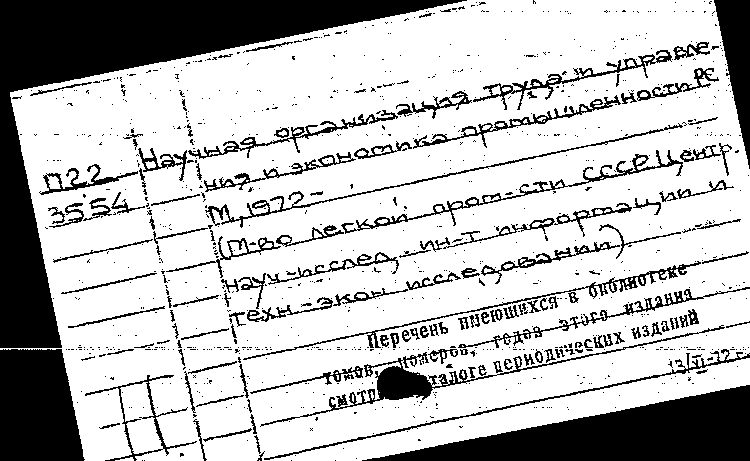 П22
3554
Научная организация труда и управле-
ния и экономика промышленности РС
М., 1972-
(М-во легкой пром-сти СССР Центр.
науч-исслед. ин-т информации и
техн-экон исследований)
Перечень имеющихся в библиотеке
томов, номеров, годов этого издания
смотр талоге периодических изданий
13/VI-72 г